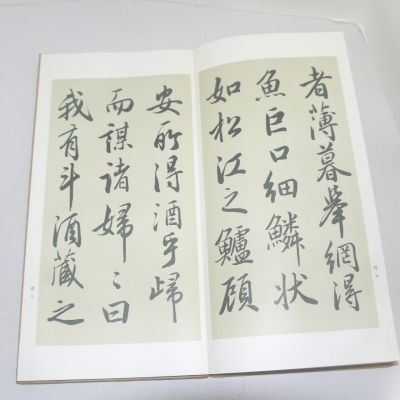 者薄暮舉網得
魚巨口細鱗状
如松江之鱸顧
安所得酒乎歸
而謀諸婦〻曰
我有斗酒藏之